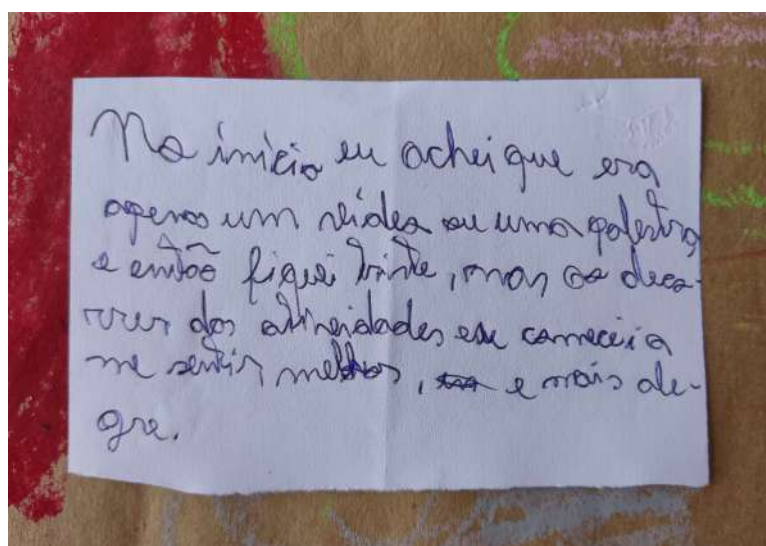 No início eu achei que era
apenas um vídeo ou uma palestra
e então fiquei triste, mas ao deco-
rrer das atividades eu comecei a
me sentir melhor, e mais ale-
gre.